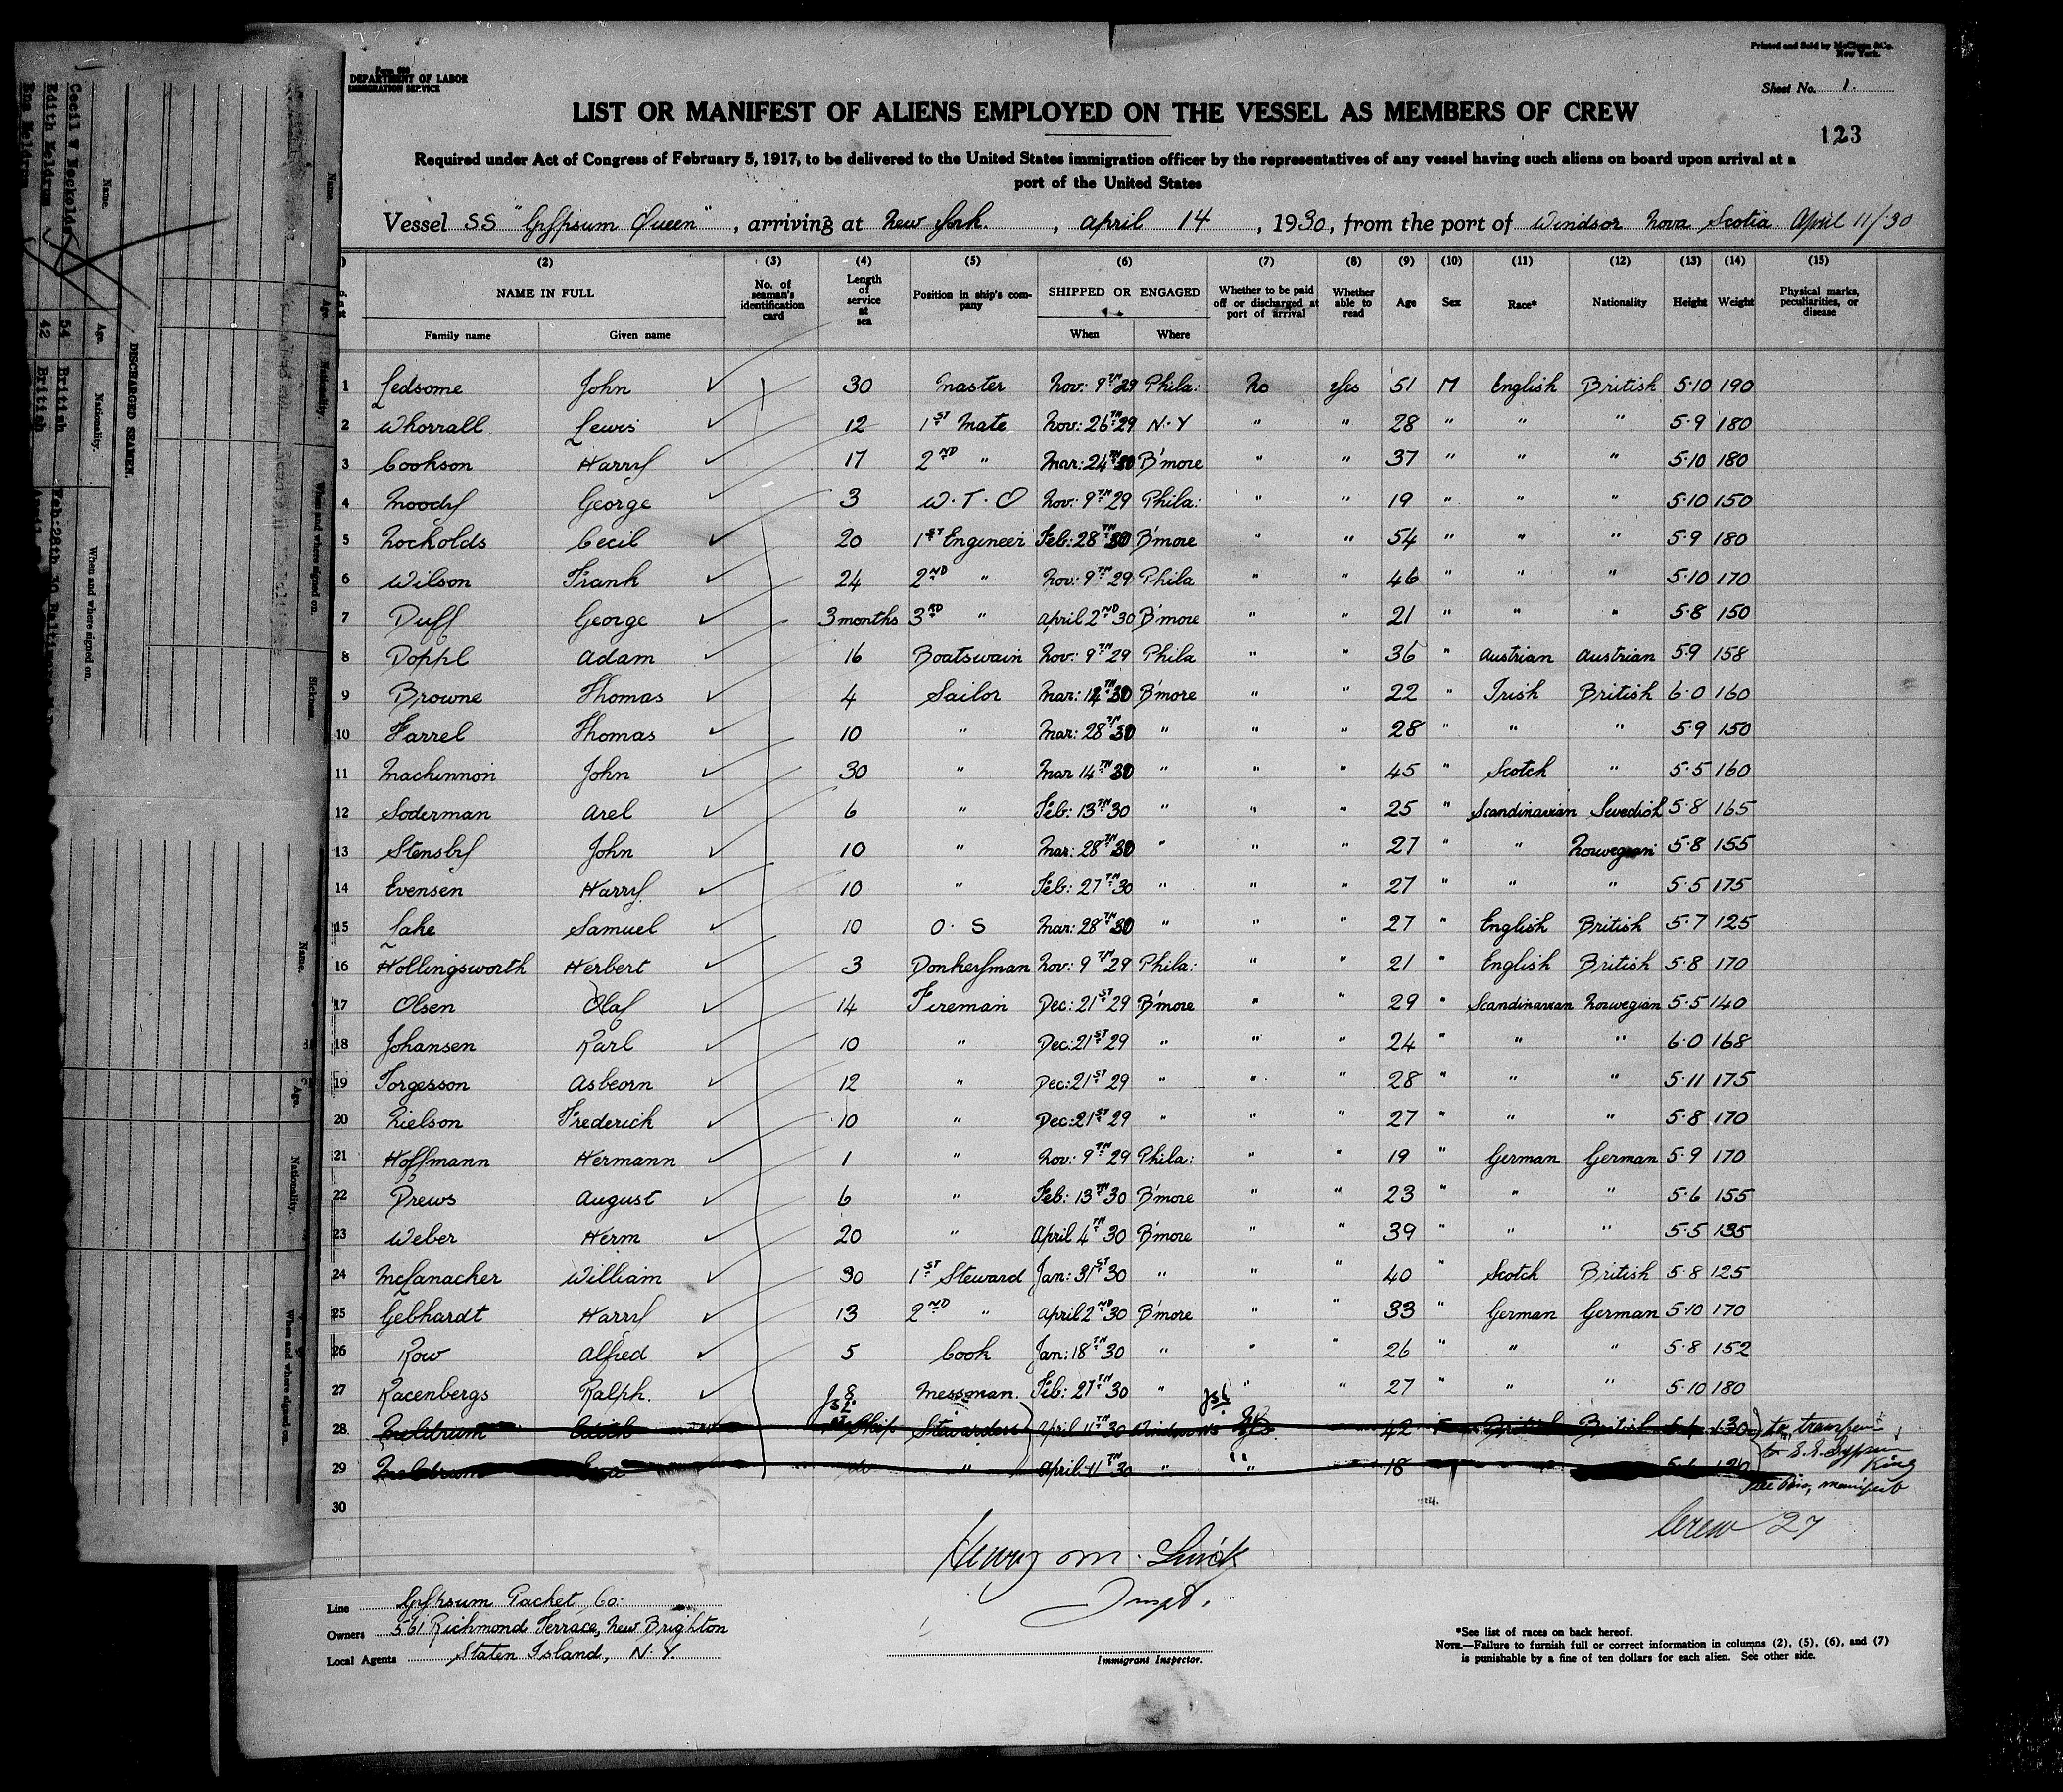 Form 680
DEPARTMENT OF LABOR
IMMIGRATION SERVICE
Printed and Sold by
New York.
Sheet No. 1.
LIST OR MANIFEST OF ALIENS EMPLOYED ON THE VESSEL AS MEMBERS OF CREW
123
Required under Act of Congress of February 5, 1917, to be delivered to the United States immigration officer by the representatives of any vessel having such aliens on board upon arrival at a
port of the United States
Vessel SS "Gypsum Queen", arriving at New York., April 14, 1930, from the port of Windsor Nova Scotia April 11/30
(2) (3) (4) (5) (6) (7) (8) (9) (10) (11) (12) (13) (14) (15)
NAME IN FULL No. of seaman's identification card Length of service at sea Position in ship's company SHIPPED OR ENGAGED Whether to be paid off or discharged at port of arrival Whether able to read Age Sex Race* Nationality Height Weight Physical marks, peculiarities, or disease
Family name Given name When Where
1 Ledsome John ✓ 30 Master Nov: 9TH 29 Phila: No Yes 51 M English British 5·10 190
2 Whorrall Lewis ✓ 12 1ST Mate Nov: 26TH 29 N·Y " " 28 " " " 5·9 180
3 Cookson Harry ✓ 17 2ND " Mar: 24TH 30 B'more " " 37 " " " 5·10 180
4 Moody George ✓ 3 W·T·O Nov: 9TH 29 Phila: " " 19 " " " 5·10 150
5 Nockolds Cecil ✓ 20 1ST Engineer Feb: 28TH 30 B'more " " 54 " " " 5·9 180
6 Wilson Frank ✓ 24 2ND " Nov: 9TH 29 Phila " " 46 " " " 5·10 170
7 Duff George ✓ 3 months 3RD " April 2ND 30 B'more " " 21 " " " 5·8 150
8 Doppl Adam ✓ 16 Boatswain Nov: 9TH 29 Phila " " 36 " Austrian Austrian 5·9 158
9 Browne Thomas ✓ 4 Sailor Mar: 14TH 30 B'more " " 22 " Irish British 6·0 160
10 Farrel Thomas ✓ 10 " Mar: 28TH 30 " " " 28 " " " 5·9 150
11 Mackinnon John ✓ 30 " Mar 14TH 30 " " " 45 " Scotch " 5·5 160
12 Soderman Arel ✓ 6 " Feb: 13TH 30 " " " 25 " Scandinavian Swedish 5·8 165
13 Stensby John ✓ 10 " Mar: 28TH 30 " " " 27 " " Norwegian 5·8 155
14 Evensen Harry ✓ 10 " Feb: 27TH 30 " " " 27 " " " 5·5 175
15 Lake Samuel ✓ 10 O·S Mar: 28TH 30 " " " 27 " English British 5·7 125
16 Hollingsworth Herbert ✓ 3 Donkeyman Nov: 9TH 29 Phila: " " 21 " English British 5·8 170
17 Olsen Olaf ✓ 14 Fireman Dec: 21ST 29 B'more " " 29 " Scandinavian Norwegian 5·5 140
18 Johansen Karl ✓ 10 " Dec: 21ST 29 " " " 24 " " " 6·0 168
19 Torgesson Asbeorn ✓ 12 " Dec: 21ST 29 " " " 28 " " " 5·11 175
20 Nielson Frederick ✓ 10 " Dec: 21ST 29 " " " 27 " " " 5·8 170
21 Hoffmann Hermann ✓ 1 " Nov: 9TH 29 Phila: " " 19 " German German 5·9 170
22 Drews August ✓ 6 " Feb: 13TH 30 B'more " " 23 " " " 5·6 155
23 Weber Herm ✓ 20 " April 4TH 30 B'more " " 39 " " " 5·5 135
24 McLanacher William ✓ 30 1ST Steward Jan: 31ST 30 " " " 40 " Scotch British 5·8 125
25 Gebhardt Harry ✓ 13 2ND " April 2ND 30 B'more " " 33 " German German 5·10 170
26 Row Alfred ✓ 5 Cook Jan: 18TH 30 " " " 26 " " " 5·8 152
27 Racenbergs Ralph. ✓ 8 Messman. Feb: 27TH 30 " " " 27 " " " 5·10 180
28 Meldrum Edith 1st Ship Stewardess April 11TH 30 Windsor NS Yes 42 F British British 130 to transfer
29 Meldrum Ena do " April 11TH 30 " " 18 120 to S.S. Gypsum King
See Pass. manifest
30
Crew 27
Henry M. Quick
Inspt.
Immigrant Inspector.
Line Gypsum Packet Co:
Owners 561 Richmond Terrace, New Brighton
Local Agents Staten Island, N.Y.
*See list of races on back hereof.
NOTE.—Failure to furnish full or correct information in columns (2), (5), (6), and (7)
is punishable by a fine of ten dollars for each alien. See other side.
DISCHARGED SEAMEN.
Name. Age. Nationality. When and where signed on.
Cecil W Nockolds 54 British Feb:28th 30 Baltimore
Edith Meldrum 42 British
Ena Meldrum
Name. Age. Nationality. When and where signed on. Sickness.
Name. Age. Nationality. When and where signed on.